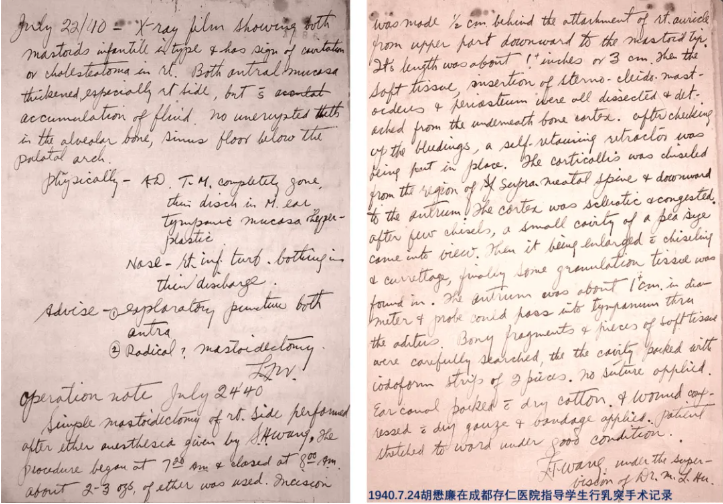 July 22/40 – X-ray film showing both
mastoids infantile in type & has sign of
or cholesteatoma in rt. Both antral mucosa
thickened, especially rt side, but s̄
accumulation of fluid. No unerupted teeth
in the alveolar bone, sinus floor below the
palatal arch.
Physically – A.D. T.M. completely gone,
thin disch in M. ear
tympanic mucosa hyper-
plastic
Nose – rt. inf. turb. bathing in
thin discharge.
Advise – ① exploratory puncture both
antra
② Radical? mastoidectomy.
operation note July 24 40
Simple mastoidectomy of rt. side performed
after ether anesthesia given by S.H. Wang. The
procedure began at 7⁰⁰ am & closed at 8⁰⁰ Am.
about 2-3 ozs, of ether was used. Incision
was made ½ cm behind the attachment of rt. auricle
from upper part downward to the mastoid tip.
It's length was about 1" inches or 3 cm. The the
soft tissue, insertion of sterno-cleido-mast-
oideus & periosteum were all dissected & det-
ached from the underneath bone cortex. after checking
up the bleedings, a self-retaining retractor was
being put in place. The corticallis was chiseled
from the region of supra meatal spine & downward
to the antrum. The cortex was sclerotic & congested.
after few chisels, a small cavity of a pea size
came into view. Then it being enlarged c̄ chiseling
& currettage, finaly some granulation tissue was
found in. The antrum was about 1 cm. in dia-
meter & probe could pass into tympanum thru
the aditus. Bony fragments & pieces of soft tissue
were carefully searched, the the cavity packed with
iodoform strips of 2 pieces. No suture applied.
Ear canal packed c̄ dry cotton. & wound
ressed c̄ dry gauze & bandage applied. Patient
stretched to ward under good condition.
Wang. under the super-
vision of Dr. M. L. Hu.
1940.7.24胡懋廉在成都存仁医院指导学生行乳突手术记录